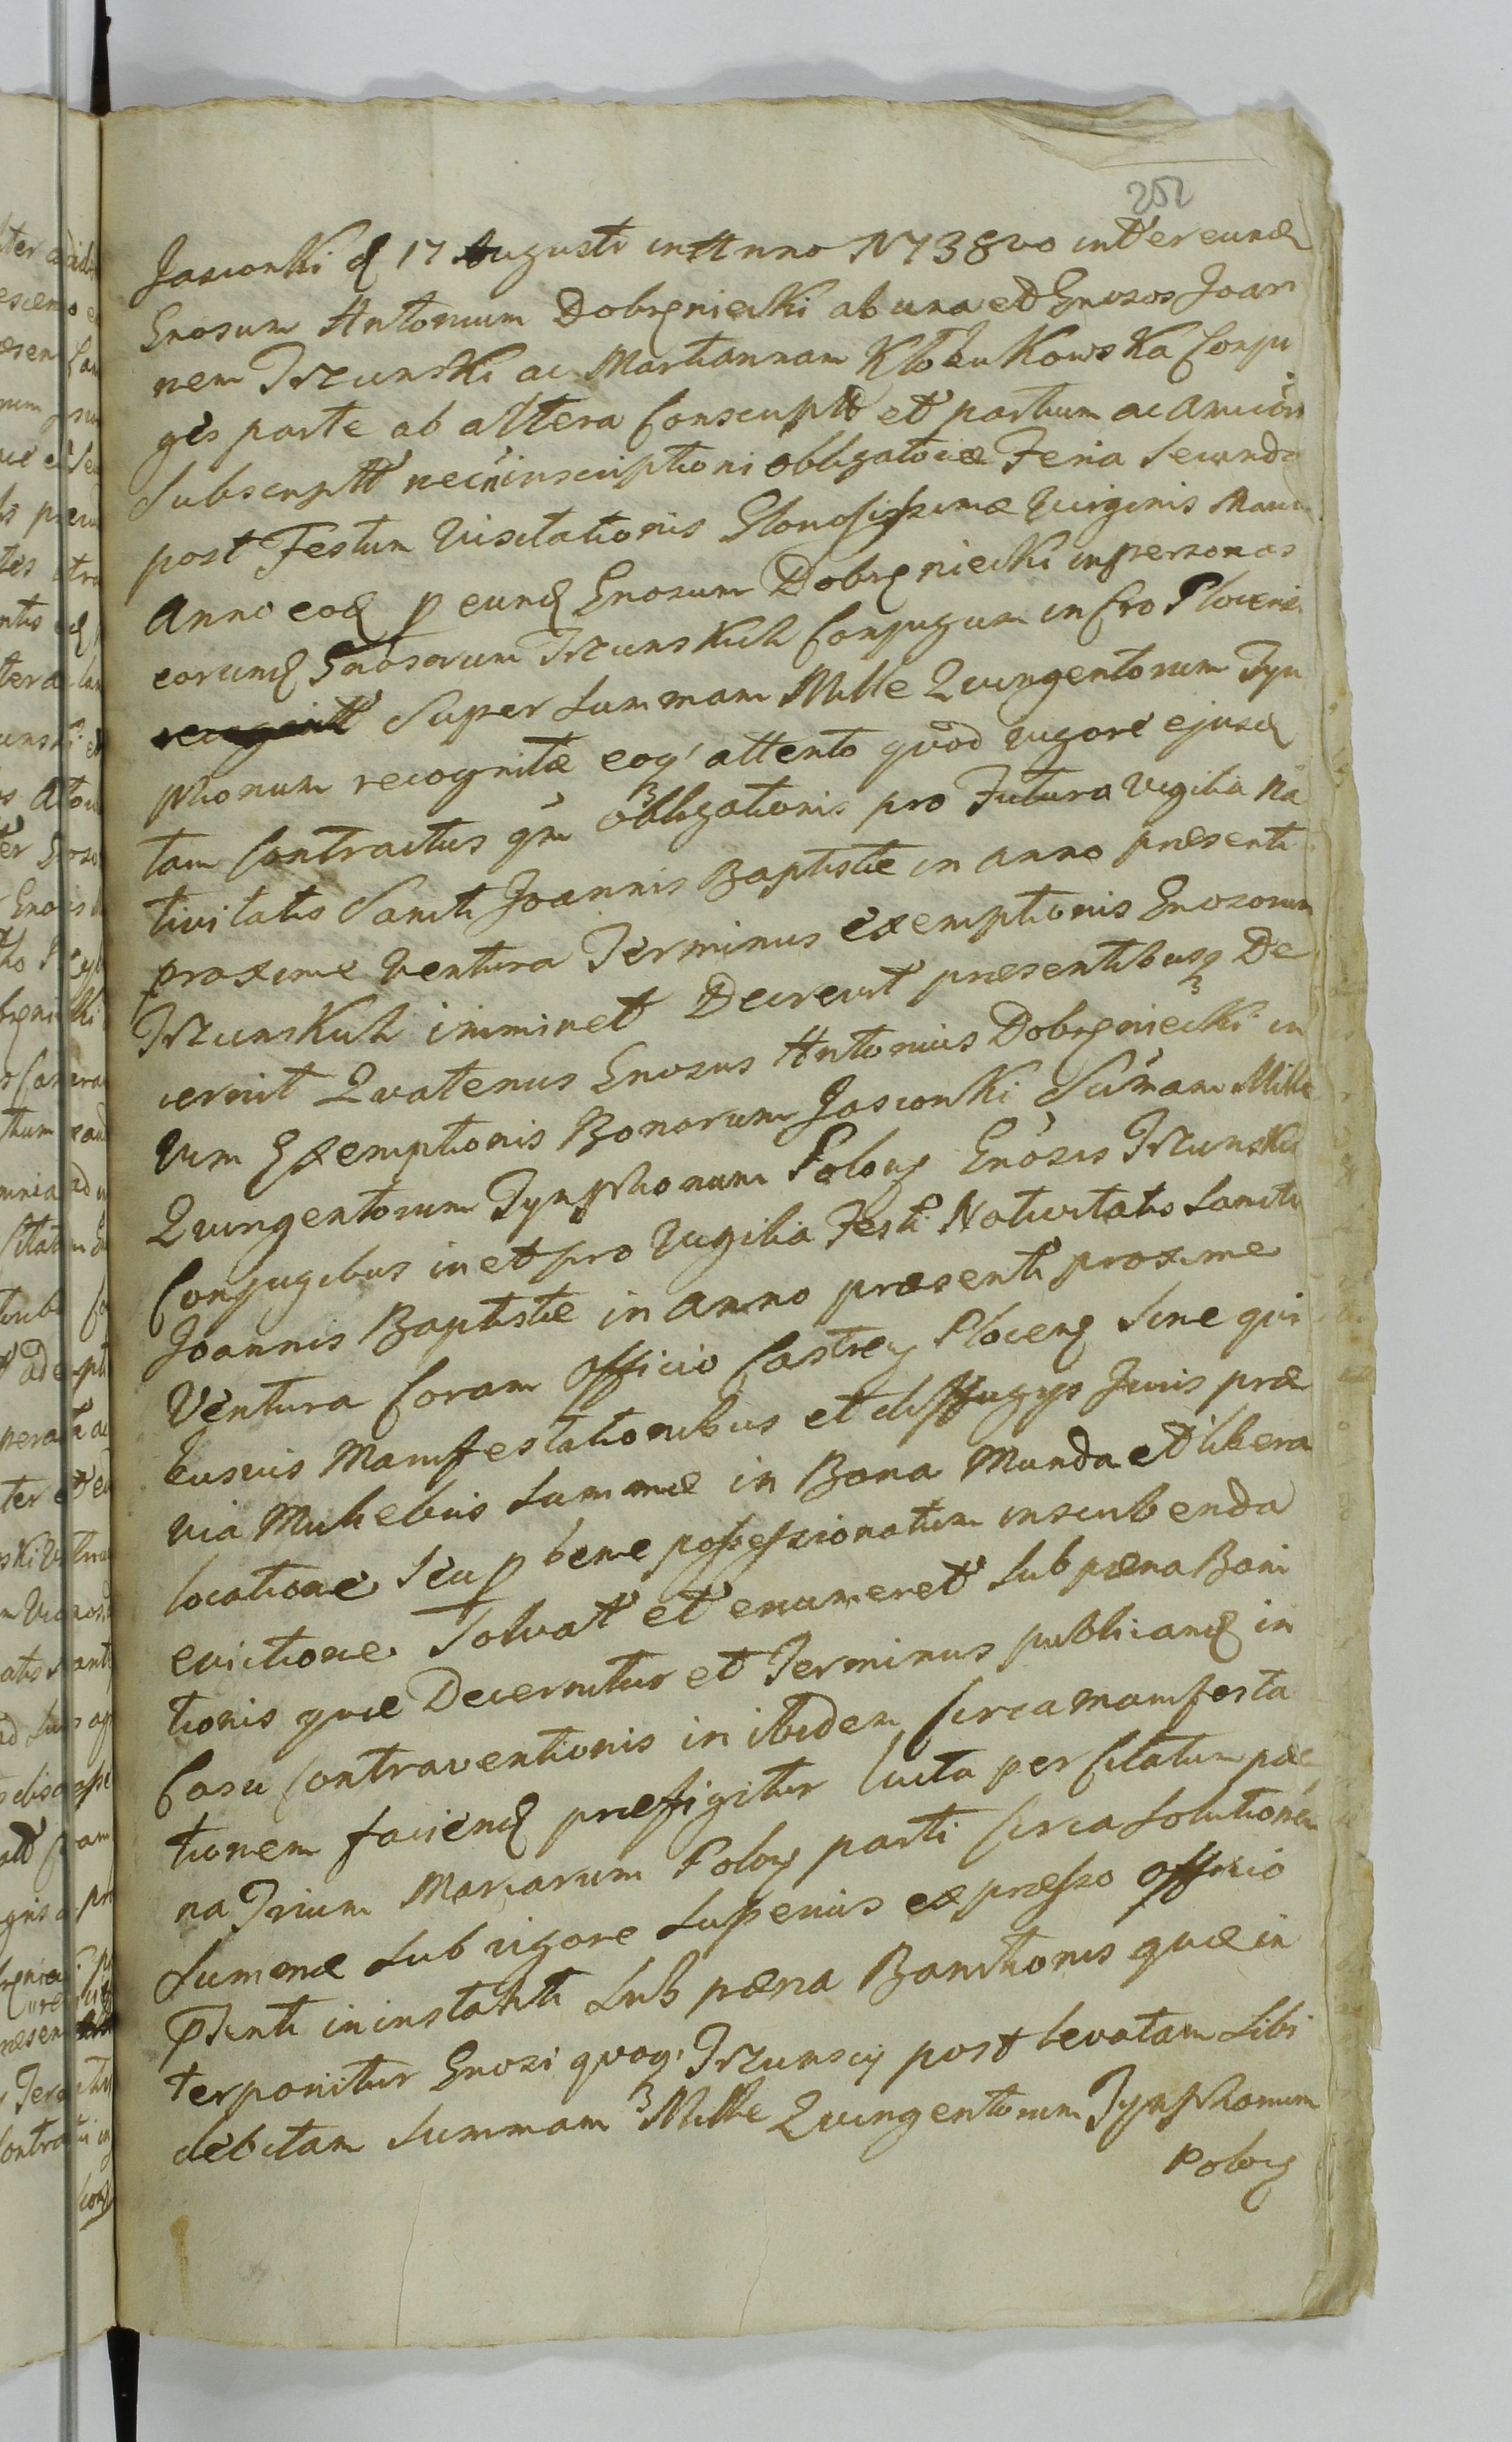 252
Jasionki d 17 Augusti in Anno N738vo inter eund
Gnosum Antonium Dobrzniecki ab una et Gnosos Joan
nem Trzcinski ac Mariannam Klobukowska Conju
ges parte ab altera Conscriptt et partium ac amicor
Subscriptt necñ inscriptioni obligatoriæ Feria Secunda
post Festum Visitationis Gloriosissimæ Virginis Mariæ
Anno eod p eund Gnosum Dobrzniecki in personas
eorund Gnosorum Trzcinskich Conjugum in Cro Plocen
Super Summam Mille Quingentorum Tyn
phonum recognitæ eoq' attento quod vigore ejusd
tam Contractus qm obligationis pro Futura Vigilia Na
tivitatis Sancti Joannis Baptistæ in anno præsenti
proxime Ventura Terminus exemptionis Gnosorum
Trzcinskich imminet Decrevit præsentibusq De
cernit Quatenus Gnosus Antonius Dobrzniecki in
Vim Exemptionis Bonorum Jasionki Sumam Mille
Quingentorum Tynphonum Polon Gnosis Trzcinskie
Conjugibus in et pro Vigilia Festi Nativitatis Sancti
Joannis Baptistæ in anno præsenti proxime
Ventura Coram Officio Castren Plocen Sine qui
busvis Manifestationibus et diffugys Juris præ
via Muliebris Summæ in Bona Munda et libera
locatione Seu p bene possessionatum inscribenda
evictione Solvat et enumeret Sub pæna Bani
tionis quæ Decernitur et Terminus publicand in
Casu Contraventionis in ibidem Circa manifesta
tionem faciend præfigitur luita per Citatum pæ
na Trium Marcarum Polon parti Circa Solutionem
Summæ Sub rigore Superius expresso Officio
Psenti in instanti Sub pæna Banitionis quæ in
terponitur Gnosi quoq' Trzcinscy post levatam Sibi
debitam Summam Mille Quingentorum Tynphonum
Polon